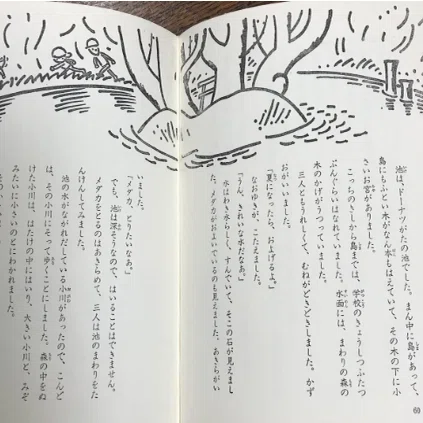 池は、ドーナツがたの池でした。まん中に島があって、
島にもふとい木がなん本もはえていて、その木の下に小
さいお宮がありました。
こっちのきしから島までは、学校のきょうしつふたつ
ぶんぐらいはなれていました。水面には、まわりの森の
木のかげがうつっていました。
三人ともうれしくて、むねがどきどきしました。かず
おがいいました。
「夏になったら、およげるよ。」
なおゆきが、こたえました。
「うん、きれいな水だなあ。」
水はわき水らしく、すんでいて、そこの石が見えまし
た。メダカがおよいでいるのも見えました。あきらがい
いました。
「メダカ、とりたいなあ。」
でも、池は深そうなので、はいることはできません。
メダカをとるのはあきらめて、三人は池のまわりをた
んけんしてみました。
池の水がながれだしている小川があったので、こんど
は、その小川にそって歩くことにしました。森の中をぬ
けた小川は、はたけの中にはいり、大きい小川と、みぞ
みたいに小さいのとにわかれました。
60